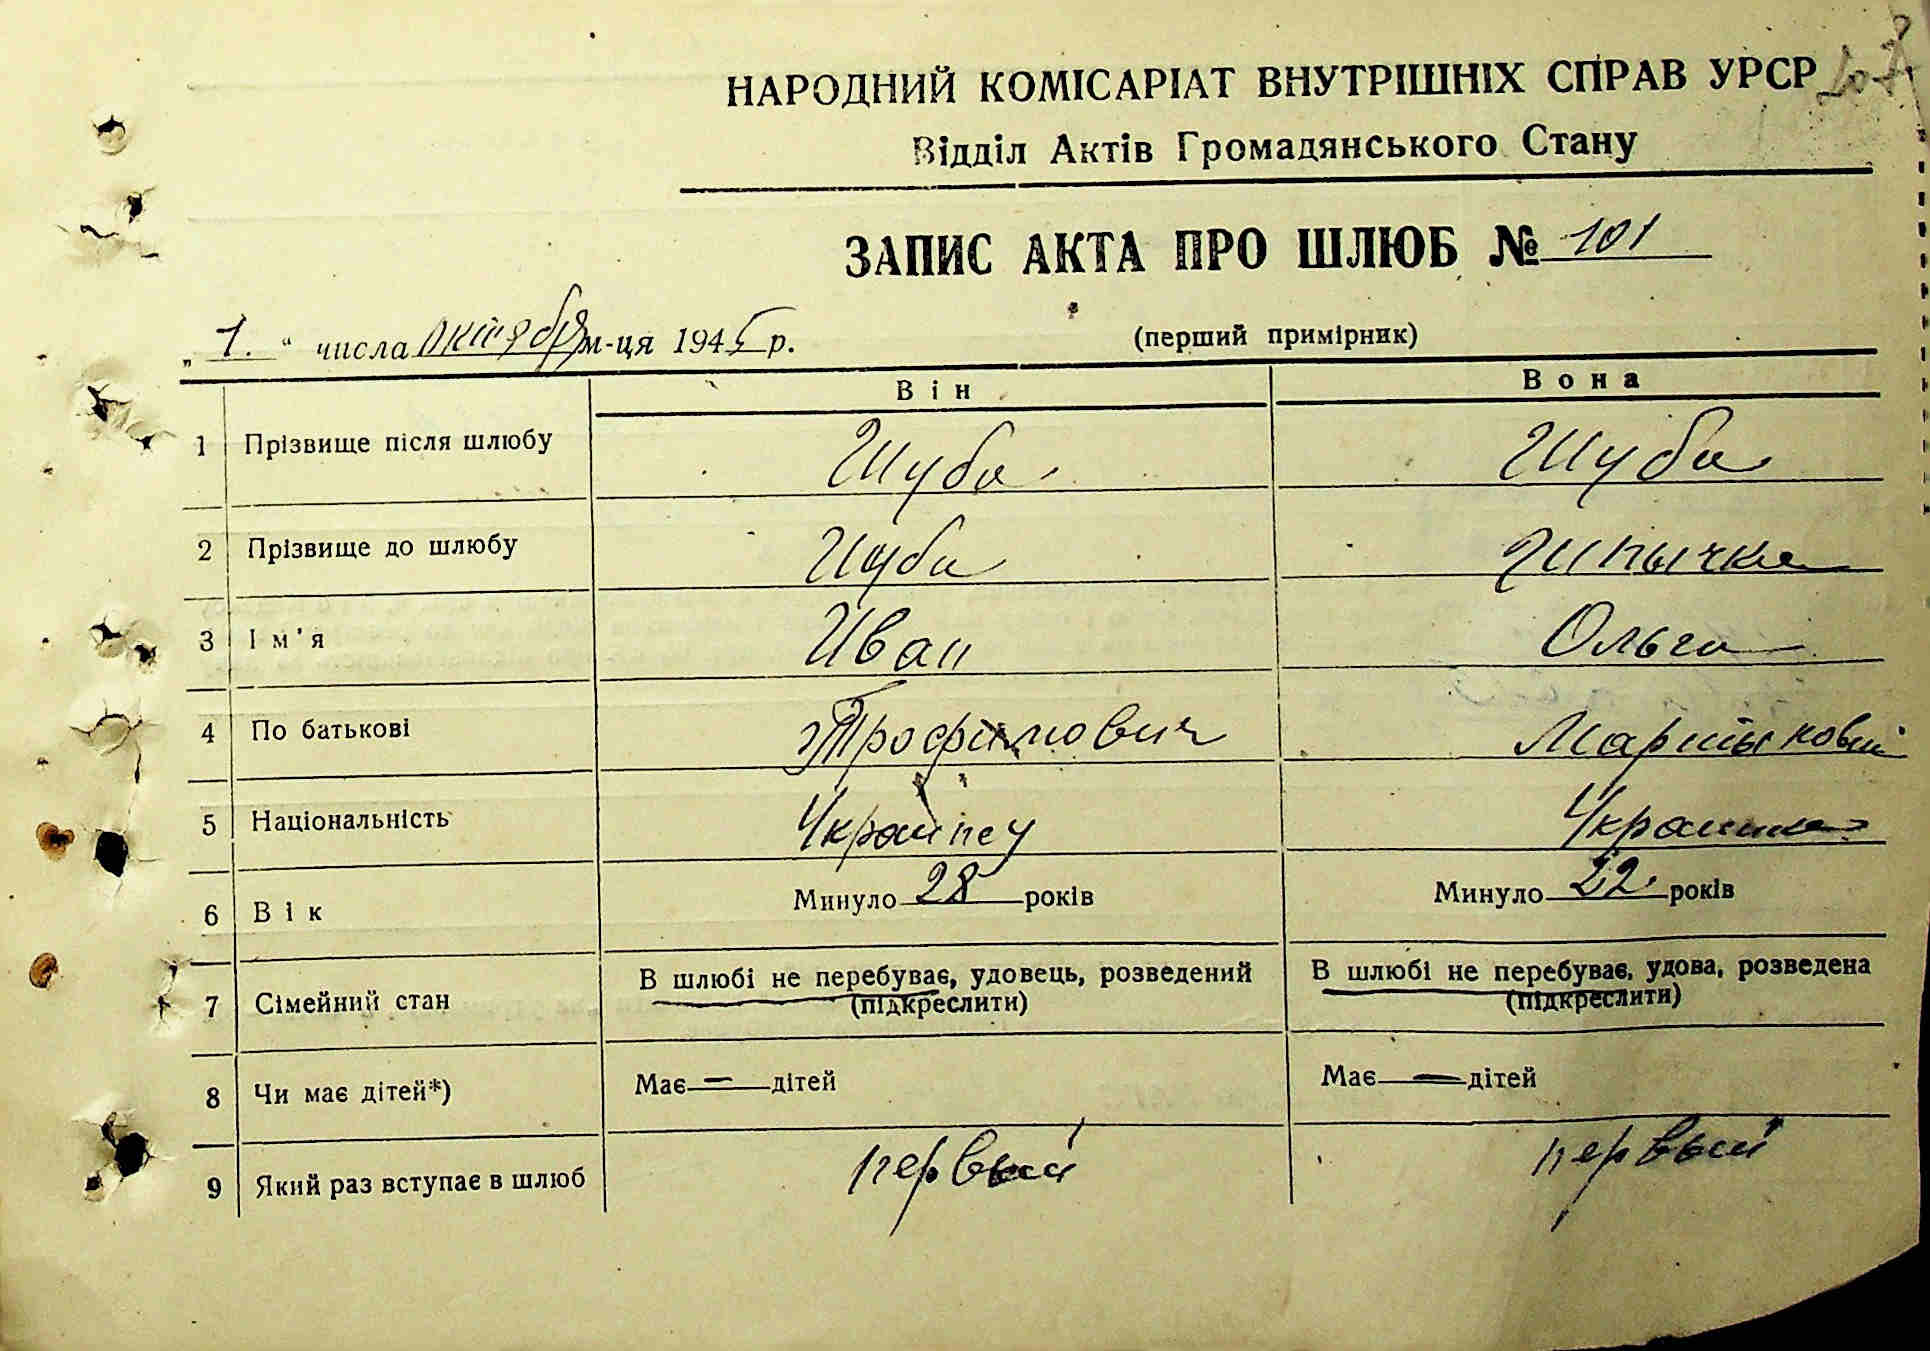 НАРОДНИЙ КОМІСАРІАТ ВНУТРІШНІХ СПРАВ УРСР
Відділ Актів Громадянського Стану
ЗАПИС АКТА ПРО ШЛЮБ № 101
„1.“ числа октября м-ця 1945 р. (перший примірник)
Він Вона
1 Прізвище після шлюбу Шуба Шуба
2 Прізвище до шлюбу Шуба Шпычка
3 Ім'я Иван Ольга
4 По батькові Трофимович
5 Національність Украинец Украинка
6 Вік Минуло 28 років Минуло 22 років
7 Сімейний стан В шлюбі не перебуває, удовець, розведений (підкреслити) В шлюбі не перебуває, удова, розведена (підкреслити)
8 Чи має дітей*) Має — дітей Має — дітей
9 Який раз вступає в шлюб первый первый